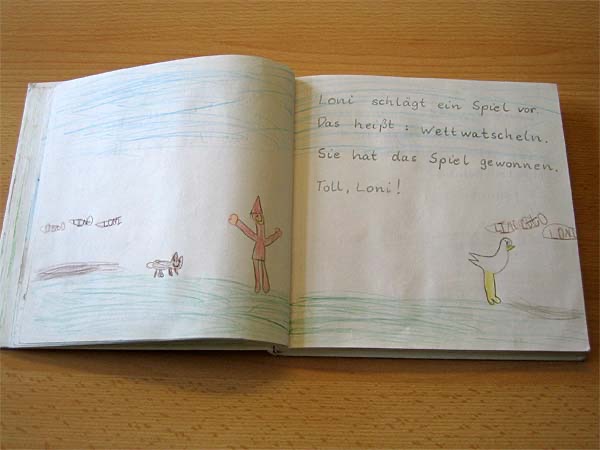 LINO LONI
Loni schlägt ein Spiel vor.
Das heißt : Wettwatscheln.
Sie hat das Spiel gewonnen.
Toll, Loni!
LINO
LONI